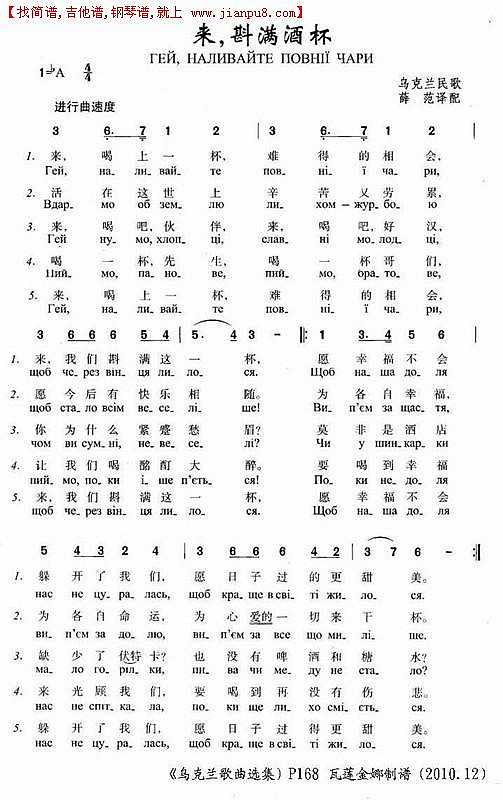 【找简谱,吉他谱,钢琴谱,就上 www.jianpu8.com】
来,斟满酒杯
ГЕЙ, НАЛИВАЙТЕ ПОВНІЇ ЧАРИ
1=♭A 4/4
乌克兰民歌
薛 范译配
进行曲速度
3 6. 7 1 2 | 3 6. 7 1 2 |
1. 来, 喝 上 一 杯, 难 得 的 相 会,
Гей, на- ли- вай- те пов- ні- ї ча- ри,
2. 活 在 这 世 上 辛 苦 又 劳 累,
Вдар- мо об зем- лю ли- хом – жур- бо- ю
3. 来, 喝 吧, 伙 伴, 来, 喝 吧, 好 汉,
Гей ну- мо, хлоп- ці, слав- ні мо- лод- ці,
4. 喝 一 杯, 先 生, 喝 一 杯 哥 们,
Пий- мо, па- но- ве, пий- мо, бра- то- ве,
5. 来, 喝 上 一 杯, 难 得 的 相 会,
Гей, на- ли- вай- те пов- ні- ї ча- ри,
3 6 6 6 5 4 | 5. 4 3 – :‖: 1 3. 4 5 6
1. 来, 我 们 斟 满 这 一 杯, 愿 幸 福 不 会
щоб че- рез він- ця ли- ло- ся. Щоб на- ша до- ля
2. 愿 今 后 有 快 乐 相 随。 为 各 自 幸 福,
щоб ста- ло всім ве- се- лі- ше! Ви- п'єм за щас- тя,
3. 你 为 什 么 紧 蹙 愁 眉? 莫 非 是 酒 店
чом ви сум- ні, не- ве- се- лі? Чи у шин- кар- ки
4. 让 我 们 喝 酩 酊 大 醉。 要 喝 到 幸 福
пий- мо, по- ки і- ше п'єть- ся! По- ки не- до- ля
5. 来, 我 们 斟 满 这 一 杯, 愿 幸 福 不 会
щоб че- рез він- ця ли- ло- ся. Щоб на- ша до- ля
5 4 3 2 4 | 3 6 6 6 2 4 | 3 7 6 – :‖
1. 躲 开 了 我 们, 愿 日 子 过 的 更 甜 美。
нас не цу- ра- лась, щоб кра- ще в сві- ті жи- ло- ся.
2. 为 各 自 命 运, 为 心 爱的 一 切 来 干 杯。
ви- п'єм за до- лю, ви- п'єм за все що ми- лі- ше.
3. 缺 少 了 伏特 卡? 也 没 有 啤 酒 和 糖 水?
ма- ло го- ріл- ки, пи- ва чи ме- ду не ста- ло?
4. 来 光 顾 我 们, 要 喝 到 再 没 有 伤 悲。
нас не спіт- ка- ла, по- ки ще ли- хо смі- єть- ся.
5. 躲 开 了 我 们, 愿 日 子 过 得 更 甜 美。
нас не цу- ра- лась, щоб кра- ще в сві- ті жи- ло- ся.
《乌克兰歌曲选集》P168 瓦莲金娜制谱 (2010.12)